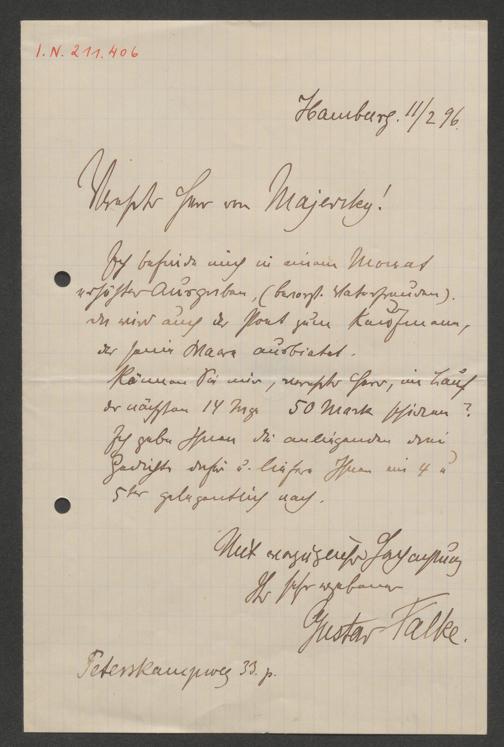 I.N. 211.406
Hamburg. 11/2 96.
Verehrter Herr von Majersky!
Ich befinde mich in einem Monat
erhöhter Ausgaben, (bevorst. Vaterfreuden).
da wird auch der Poet zum Kaufmann,
der seine Waare ausbietet.
Können Sie mir, verehrter Herr, im Lauf
der nächsten 14 Tge 50 Mark schicken?
Ich gebe Ihnen die anliegenden drei
Gedichte dafür u. liefere Ihnen ein 4 u
5tes gelegentlich nach.
Mit vorzüglicher Hochachtung
Ihr sehr ergebener
Gustav Falke.
Peterskampweg 33. p.